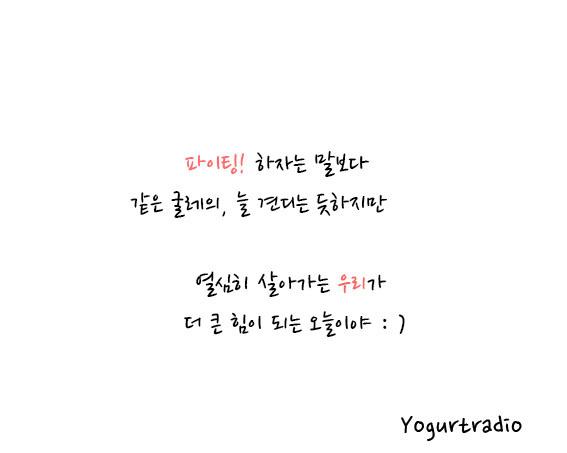 파이팅! 하자는 말보다
같은 굴레의, 늘 견디는 듯하지만
열심히 살아가는 우리가
더 큰 힘이 되는 오늘이야 : )
Yogurtradio